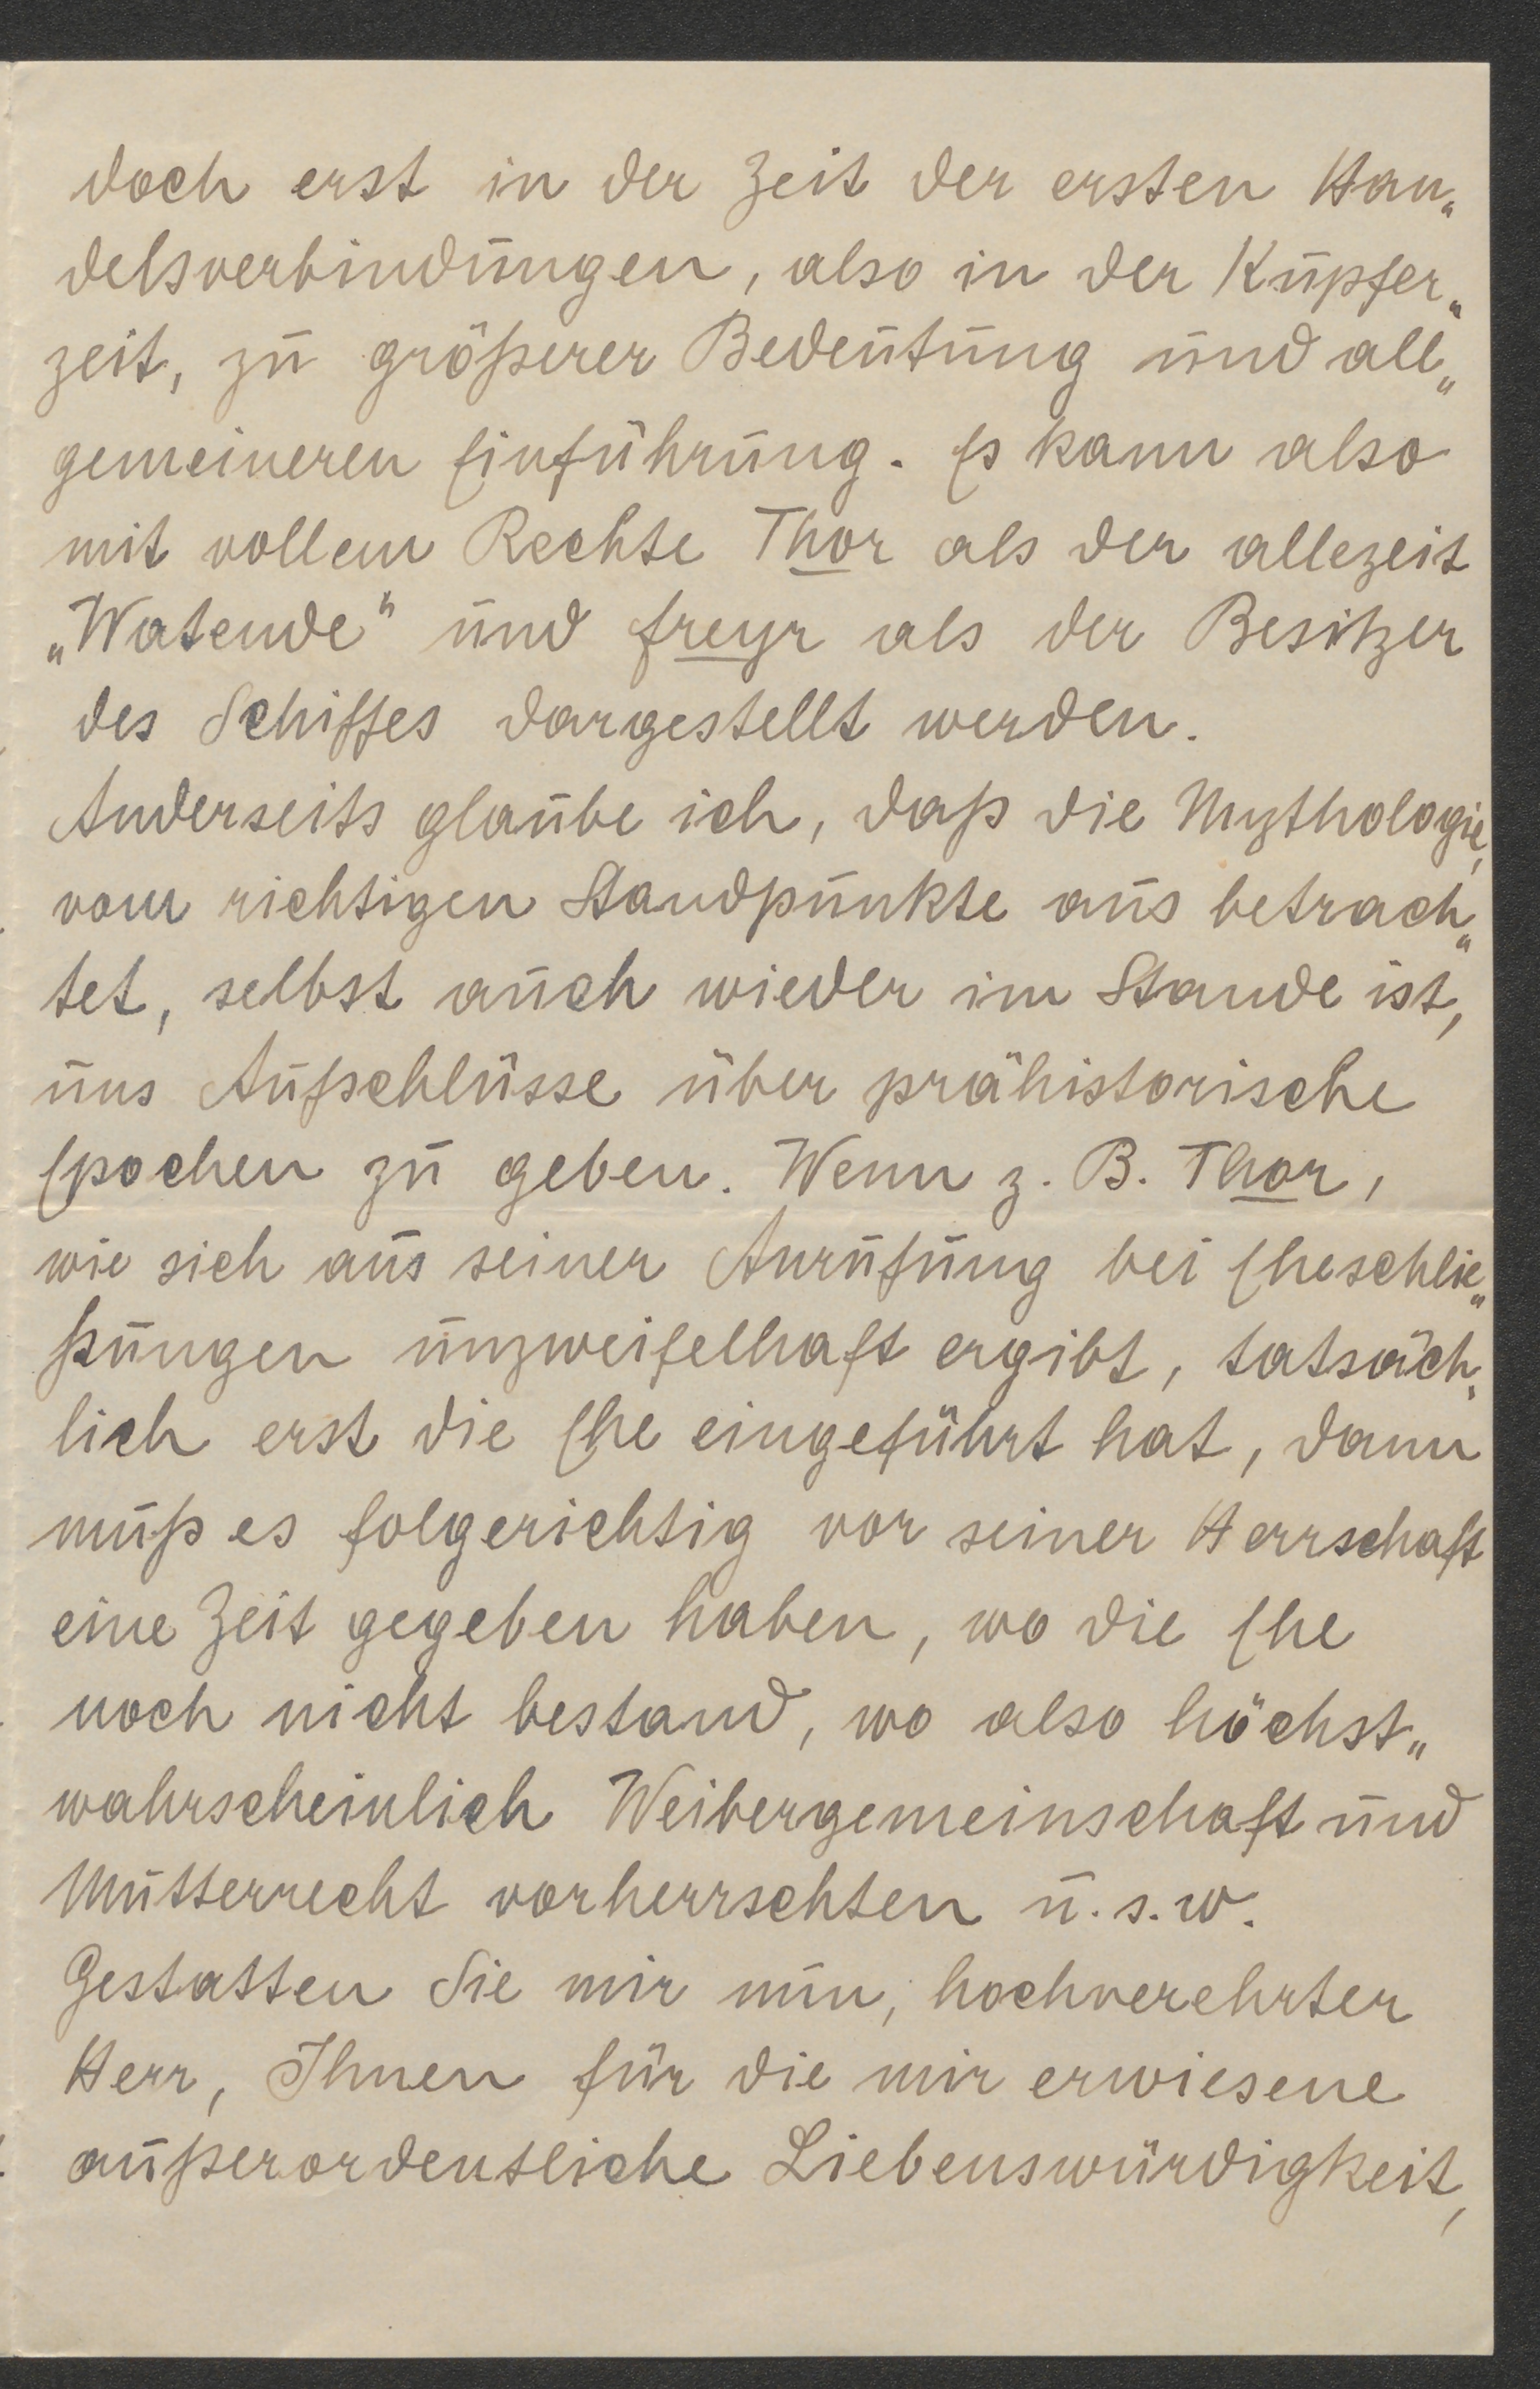 doch erst in der Zeit der ersten Han„
delsverbindungen, also in der Kupfer„
zeit, zu größerer Bedeutung und all„
gemeineren Einführung. Es kann also
mit vollem Rechte Thor als der allezeit
„Watende“ und Freyr als der Besitzer
des Schiffes dargestellt werden.
Anderseits glaube ich, daß die Mythologie,
vom richtigen Standpunkte aus betrach„
tet, selbst auch wieder im Stande ist,
uns Aufschlüsse über prähistorische
Epochen zu geben. Wenn z. B. Thor,
wie sich aus seiner Anrufung bei Eheschlie„
ßungen unzweifelhaft ergibt, tatsäch„
lich erst die Ehe eingeführt hat, dann
muß es folgerichtig vor seiner Herrschaft
eine Zeit gegeben haben, wo die Ehe
noch nicht bestand, wo also höchst„
wahrscheinlich Weibergemeinschaft und
Mutterrecht vorherrschten u. s. w.
Gestatten Sie mir nun, hochverehrter
Herr, Ihnen für die mir erwiesene
außerordentliche Liebenswürdigkeit,